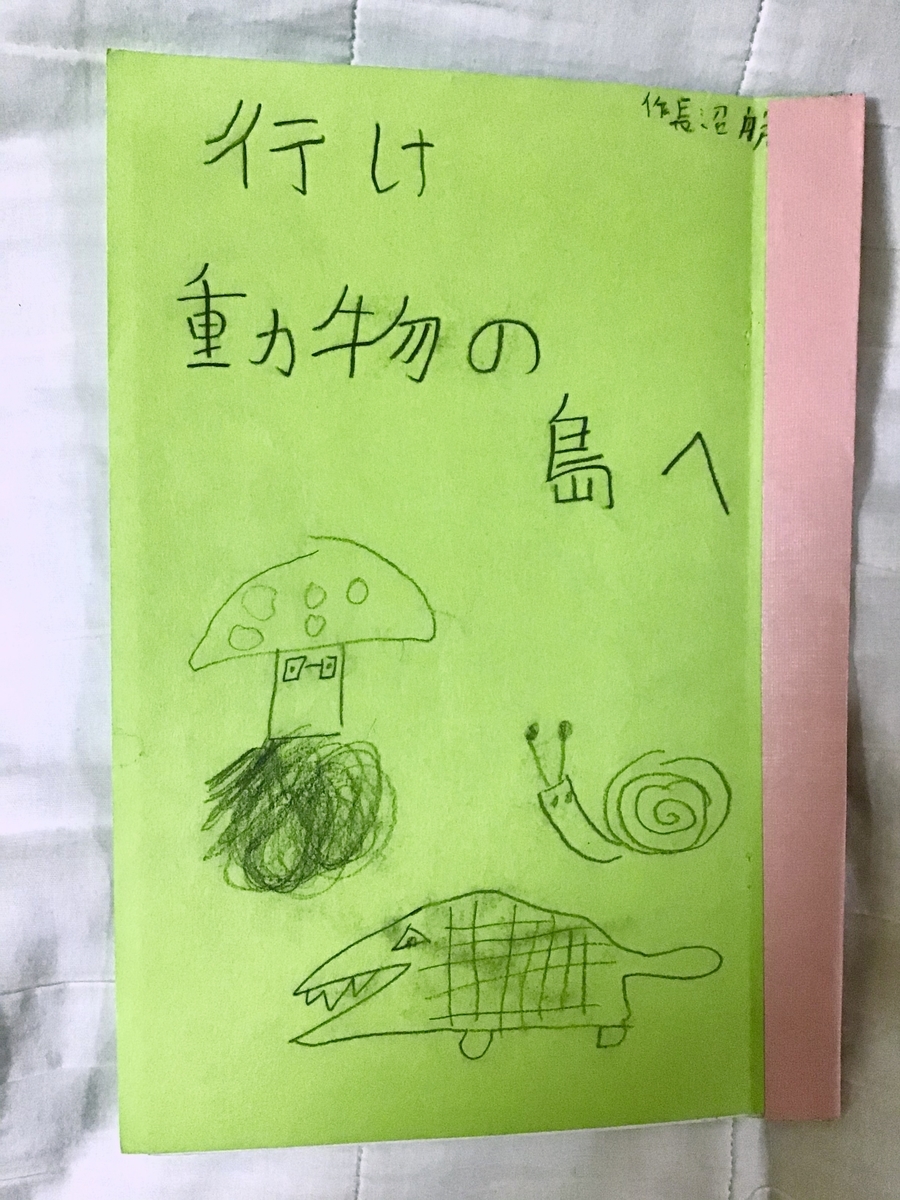 作長沼
行け
動物の
島へ